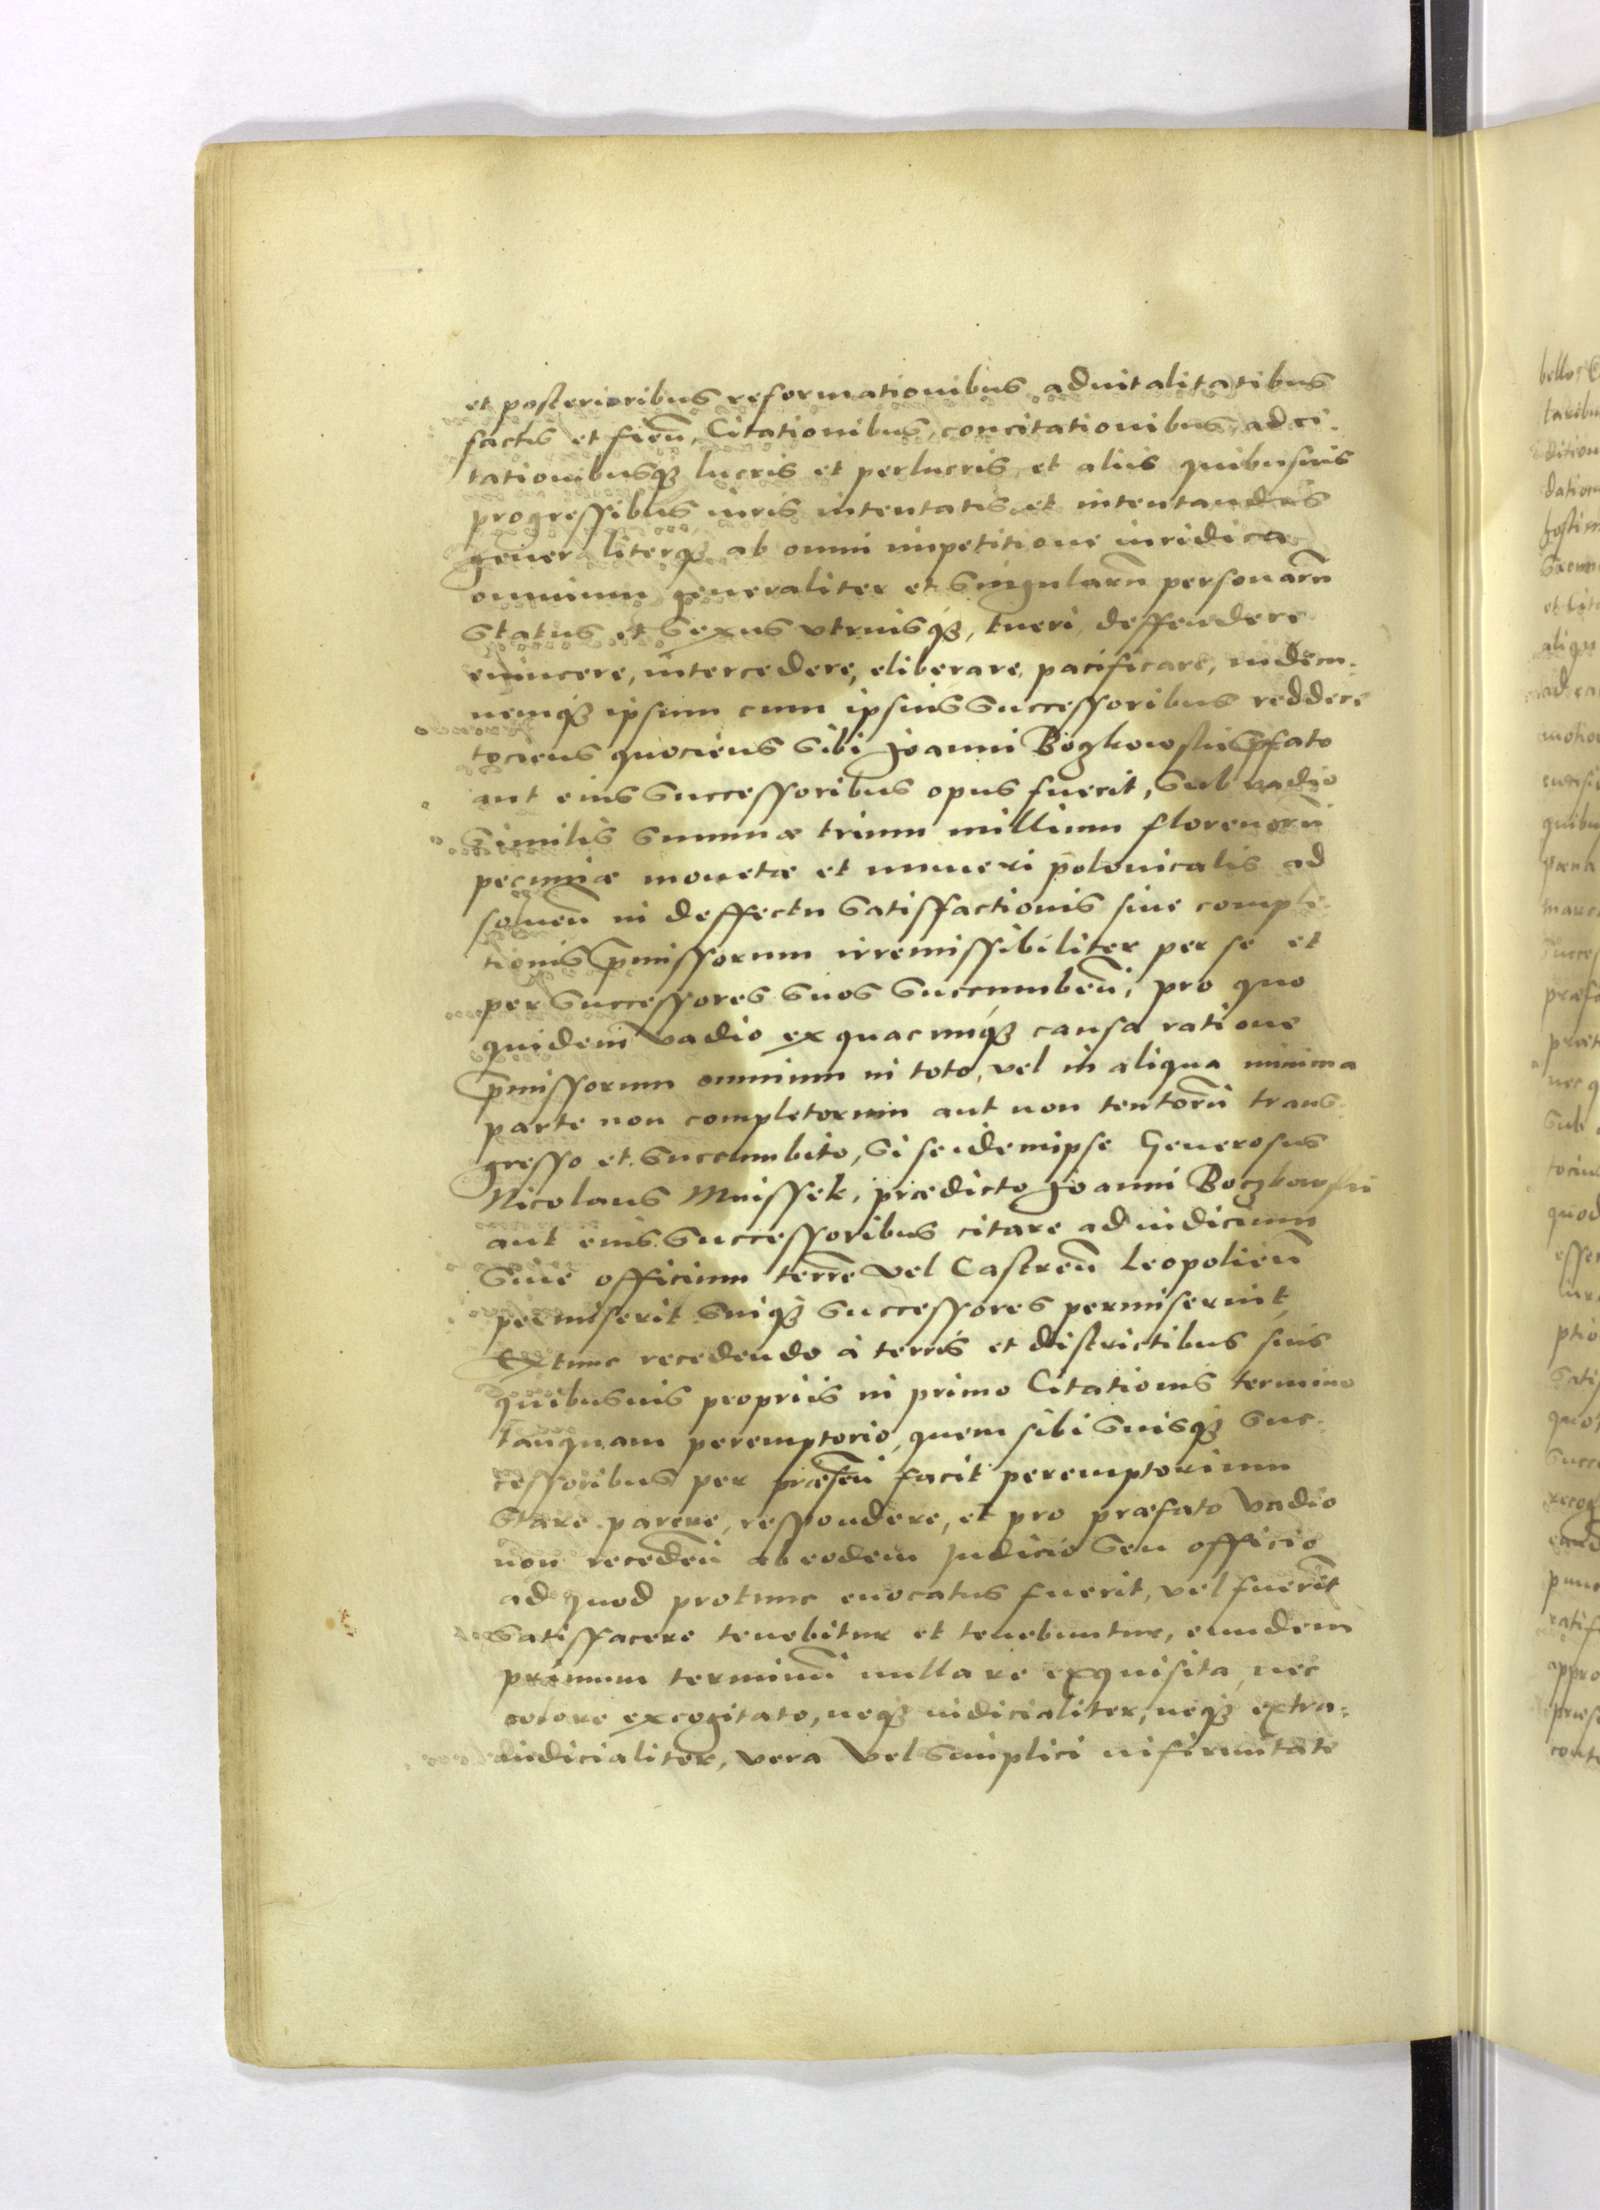 et posterioribus reformationibus aduitalitatibus
factis et fieñ, Citationibus, concitationibus, adci-
tationibusqꝫ lucris et perlucris, et alijs quibusuis
progressibus iuris intentatis et intentandis
generaliterqꝫ ab omni impetitione iuridica
omnium generaliter et singularũ personarũ
status et sexus vtriusqꝫ, tueri, deffendere
euincere, intercedere, eliberare, pacificare, indem-
nemqꝫ ipsum cum ipsius successoribus reddere
tociens quociens sibi Joanni Boczkowski p̃fato
aut eius successoribus opus fuerit, sub vadio
similis summæ trium millium florenorũ
pecuniæ monetæ et numeri polonicalis ad
solueñ in deffectu satisfactionis siue comple-
tionis p̃missorum irremissibiliter per se et
per successores suos succumbeñ, pro quo
quidem vadio ex quacunqꝫ causa ratione
p̃missorum omnium in toto, vel in aliqua minima
parte non completorum aut non tentorũ trans-
gresso et succumbito, si se idem ipse Generosus
Nicolaus Mnissek, prædicto Joanni Boczkowski
aut eius successoribus citare ad iudicium
siue officium terr̃e vel Castreñ Leopolieñ
permiserit suiqꝫ successores permiserint,
Extunc recedendo à terris et districtibus suis
quibusuis proprijs in primo Citationis termino
tanquam peremptorio, quem sibi suisqꝫ suc-
cessoribus per præseñ facit peremptorium
stare parere, respondere, et pro præfato vadio
non recedeñ ab eodem Judicio seu officio
ad quod protunc euocatus fuerit, vel fuerĩt
satisfacere tenebitur et tenebuntur, eundem
primum terminũ nulla re exquisita, nec
colore excogitato, neqꝫ iudicialiter, neqꝫ extra-
iudicialiter, vera vel simplici infirmitate